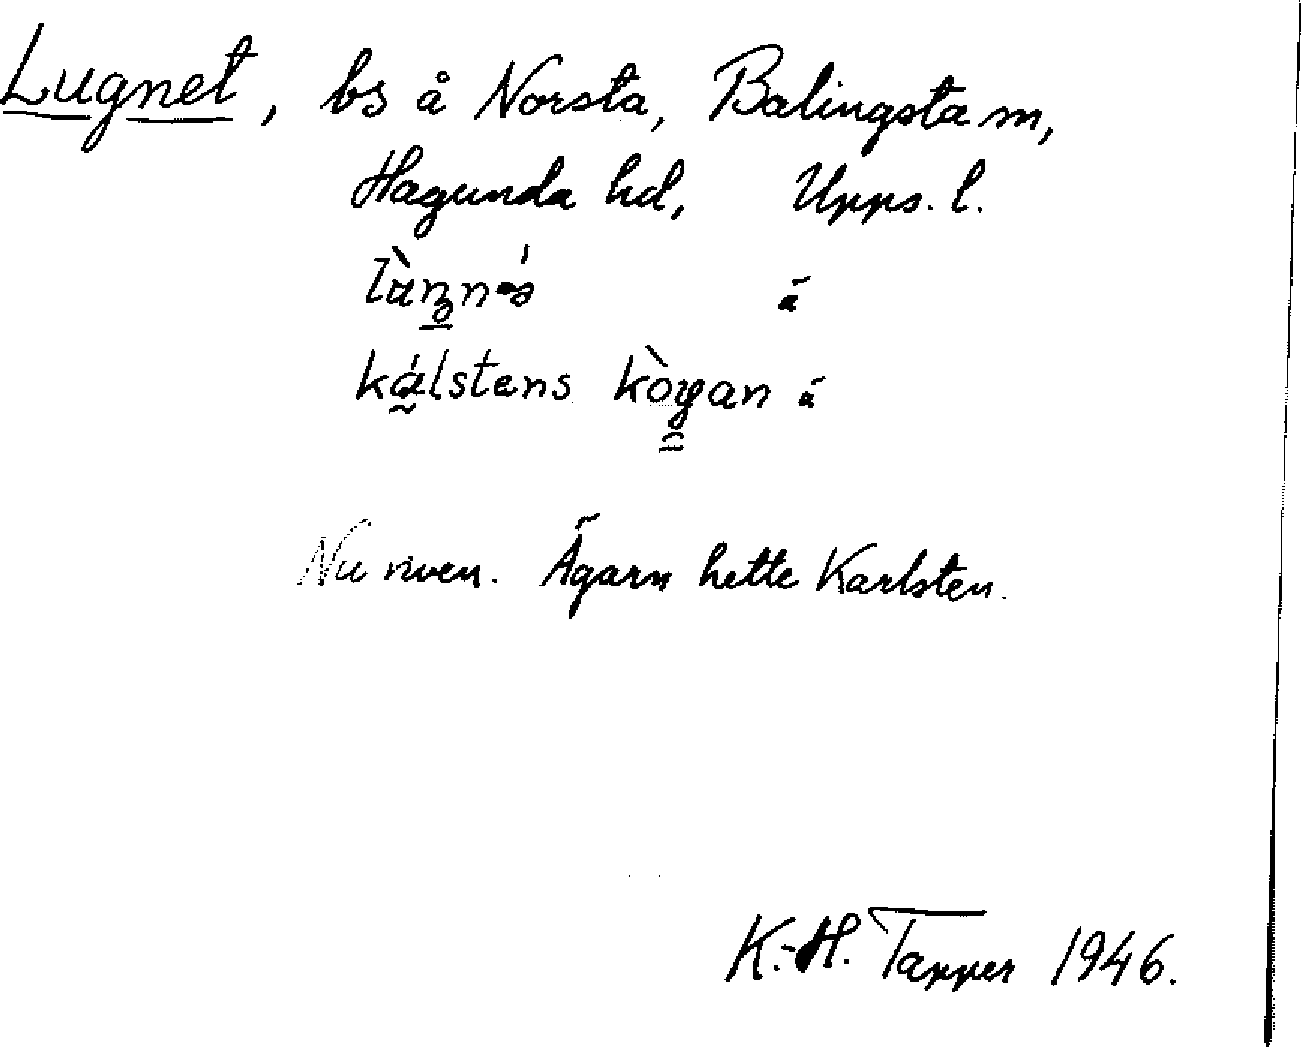 Lugnet, bs å Norsta, Balingsta sn,
Hagunda hd, Upps. l.
kálstens kògan á
Nu riven. Ägarn hette Karlsten.
K.-H. Tapper 1946.